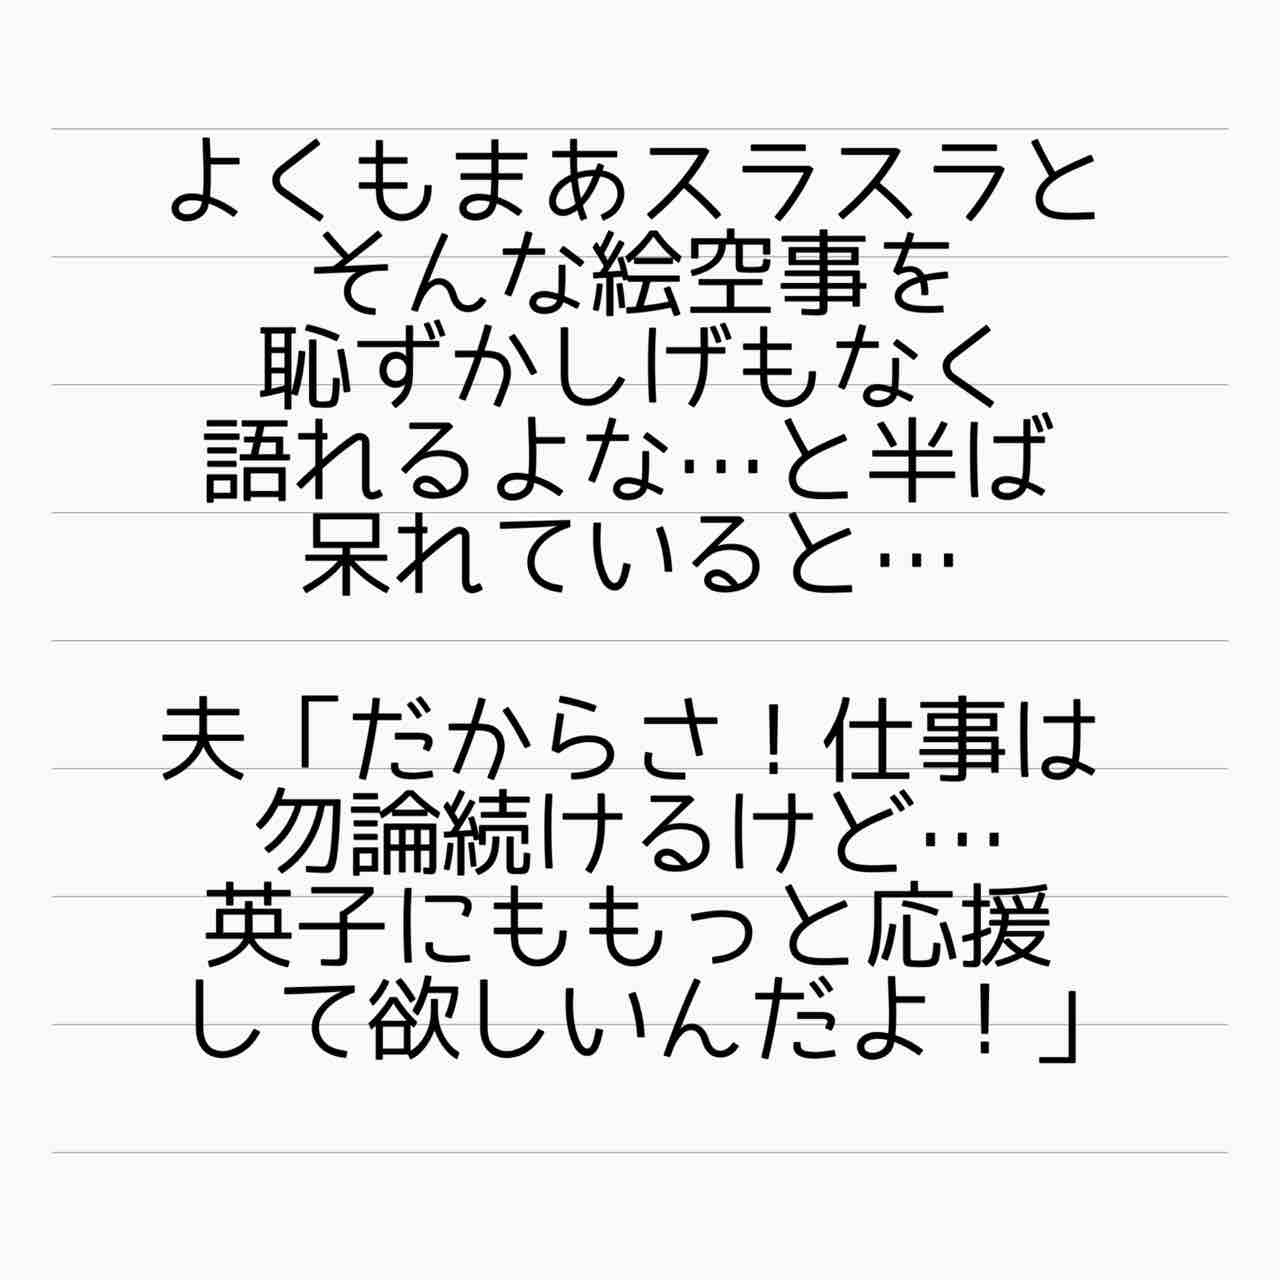 よくもまあスラスラと
そんな絵空事を
恥ずかしげもなく
語れるよな…と半ば
呆れていると…
夫「だからさ！仕事は
勿論続けるけど…
英子にももっと応援
して欲しいんだよ！」